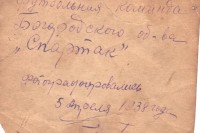 Футбольная команда
Богородского об-ва
„Спартак"
фотографировались
5 апреля 1938 года